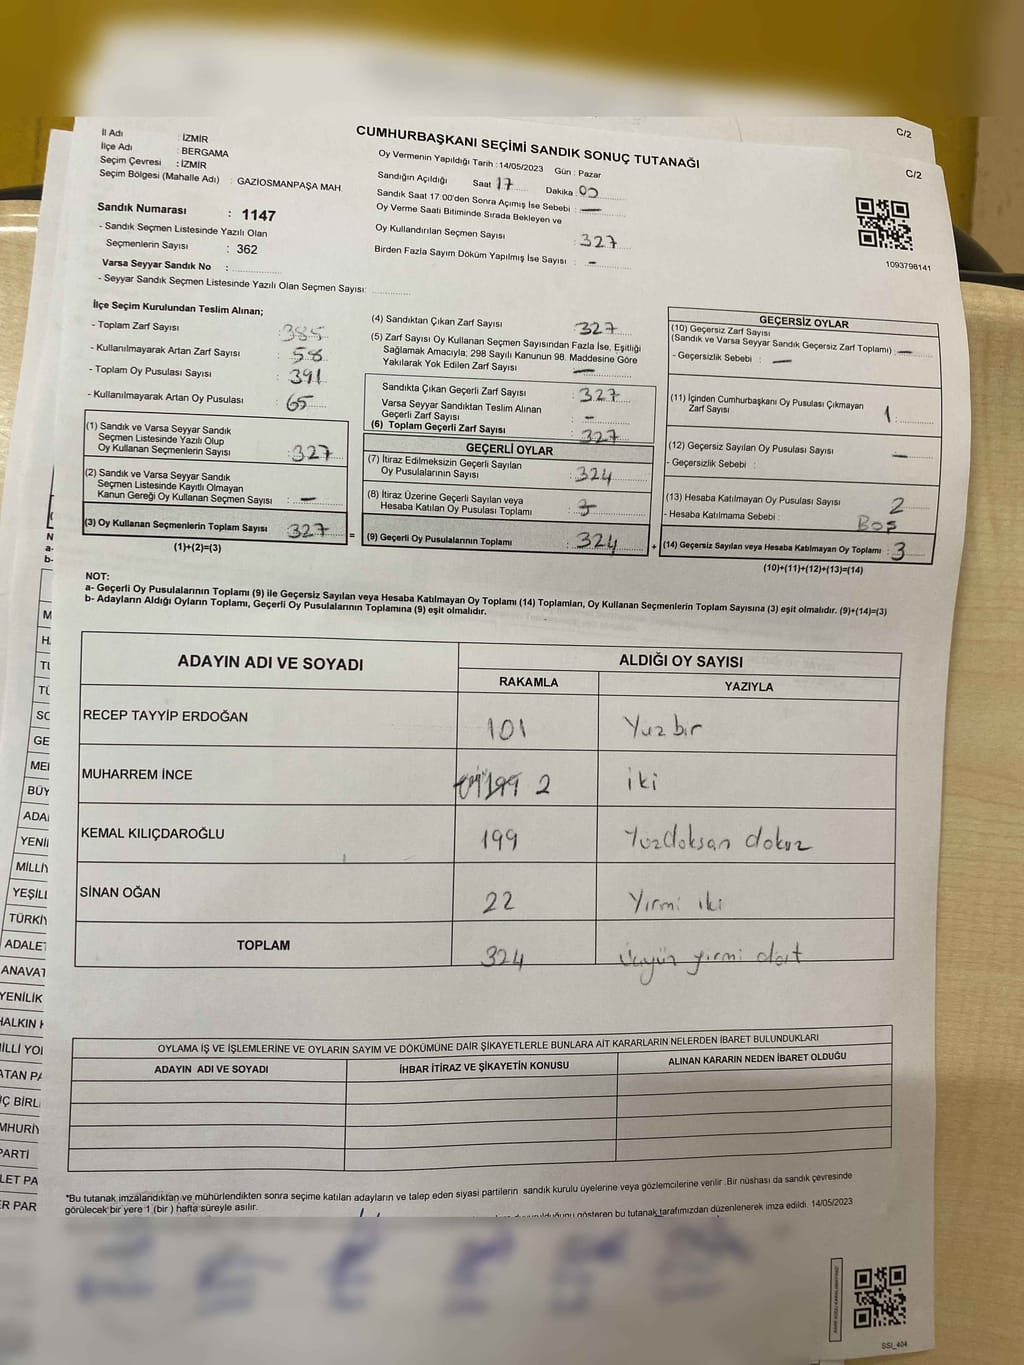 C/2
C/2
İl Adı : İZMİR
İlçe Adı : BERGAMA
Seçim Çevresi : İZMİR
Seçim Bölgesi (Mahalle Adı) : GAZİOSMANPAŞA MAH.
Sandık Numarası : 1147
- Sandık Seçmen Listesinde Yazılı Olan
Seçmenlerin Sayısı : 362
Varsa Seyyar Sandık No :
- Seyyar Sandık Seçmen Listesinde Yazılı Olan Seçmen Sayısı:
CUMHURBAŞKANI SEÇİMİ SANDIK SONUÇ TUTANAĞI
Oy Vermenin Yapıldığı Tarih : 14/05/2023 Gün : Pazar
Sandığın Açıldığı Saat 17 Dakika 00
Sandık Saat 17:00'den Sonra Açımış İse Sebebi : —
Oy Verme Saati Bitiminde Sırada Bekleyen ve
Oy Kullandırılan Seçmen Sayısı : 327
Birden Fazla Sayım Döküm Yapılmış İse Sayısı : -
1093798141
İlçe Seçim Kurulundan Teslim Alınan;
- Toplam Zarf Sayısı : 385
- Kullanılmayarak Artan Zarf Sayısı : 58
- Toplam Oy Pusulası Sayısı : 391
- Kullanılmayarak Artan Oy Pusulası : 65
(1) Sandık ve Varsa Seyyar Sandık
Seçmen Listesinde Yazılı Olup
Oy Kullanan Seçmenlerin Sayısı : 327
(2) Sandık ve Varsa Seyyar Sandık
Seçmen Listesinde Kayıtlı Olmayan
Kanun Gereği Oy Kullanan Seçmen Sayısı : —
(3) Oy Kullanan Seçmenlerin Toplam Sayısı : 327
(1)+(2)=(3)
(4) Sandıktan Çıkan Zarf Sayısı : 327
(5) Zarf Sayısı Oy Kullanan Seçmen Sayısından Fazla İse, Eşitliği
Sağlamak Amacıyla; 298 Sayılı Kanunun 98. Maddesine Göre
Yakılarak Yok Edilen Zarf Sayısı : —
Sandıkta Çıkan Geçerli Zarf Sayısı : 327
Varsa Seyyar Sandıktan Teslim Alınan
Geçerli Zarf Sayısı : -
(6) Toplam Geçerli Zarf Sayısı : 327
GEÇERLİ OYLAR
(7) İtiraz Edilmeksizin Geçerli Sayılan
Oy Pusulalarının Sayısı : 324
(8) İtiraz Üzerine Geçerli Sayılan veya
Hesaba Katılan Oy Pusulası Toplamı :
= (9) Geçerli Oy Pusulalarının Toplamı : 324
GEÇERSİZ OYLAR
(10) Geçersiz Zarf Sayısı
(Sandık ve Varsa Seyyar Sandık Geçersiz Zarf Toplamı) : —
- Geçersizlik Sebebi : —
(11) İçinden Cumhurbaşkanı Oy Pusulası Çıkmayan
Zarf Sayısı : 1
(12) Geçersiz Sayılan Oy Pusulası Sayısı : —
- Geçersizlik Sebebi :
(13) Hesaba Katılmayan Oy Pusulası Sayısı : 2
- Hesaba Katılmama Sebebi : Boş
+ (14) Geçersiz Sayılan veya Hesaba Katılmayan Oy Toplamı : 3
(10)+(11)+(12)+(13)=(14)
NOT:
a- Geçerli Oy Pusulalarının Toplamı (9) ile Geçersiz Sayılan veya Hesaba Katılmayan Oy Toplamı (14) Toplamları, Oy Kullanan Seçmenlerin Toplam Sayısına (3) eşit olmalıdır. (9)+(14)=(3)
b- Adayların Aldığı Oyların Toplamı, Geçerli Oy Pusulalarının Toplamına (9) eşit olmalıdır.
ADAYIN ADI VE SOYADI ALDIĞI OY SAYISI
RAKAMLA YAZIYLA
RECEP TAYYİP ERDOĞAN 101 Yüz bir
MUHARREM İNCE 2 iki
KEMAL KILIÇDAROĞLU 199 Yüzdoksan dokuz
SİNAN OĞAN 22 Yirmi iki
TOPLAM 324 Üçyüz yirmi dört
OYLAMA İŞ VE İŞLEMLERİNE VE OYLARIN SAYIM VE DÖKÜMÜNE DAİR ŞİKAYETLERLE BUNLARA AİT KARARLARIN NELERDEN İBARET BULUNDUKLARI
ADAYIN ADI VE SOYADI İHBAR İTİRAZ VE ŞİKAYETİN KONUSU ALINAN KARARIN NEDEN İBARET OLDUĞU
*Bu tutanak imzalandıktan ve mühürlendikten sonra seçime katılan adayların ve talep eden siyasi partilerin sandık kurulu üyelerine veya gözlemcilerine verilir. Bir nüshası da sandık çevresinde
görülecek bir yere 1 (bir ) hafta süreyle asılır.
duyurulduğunu gösteren bu tutanak tarafımızdan düzenlenerek imza edildi. 14/05/2023
N
a-
b-
M
H
TÜ
SO
GE
ME
BÜY
ADA
YENİ
MİLLİ
YEŞİL
TÜRKİY
ADALET
ANAVAT
YENİLİK
HALKIN
İLLİ YOI
ATAN PA
Ç BİRL
MHURİY
PARTİ
LET PA
R PAR
SSI_404